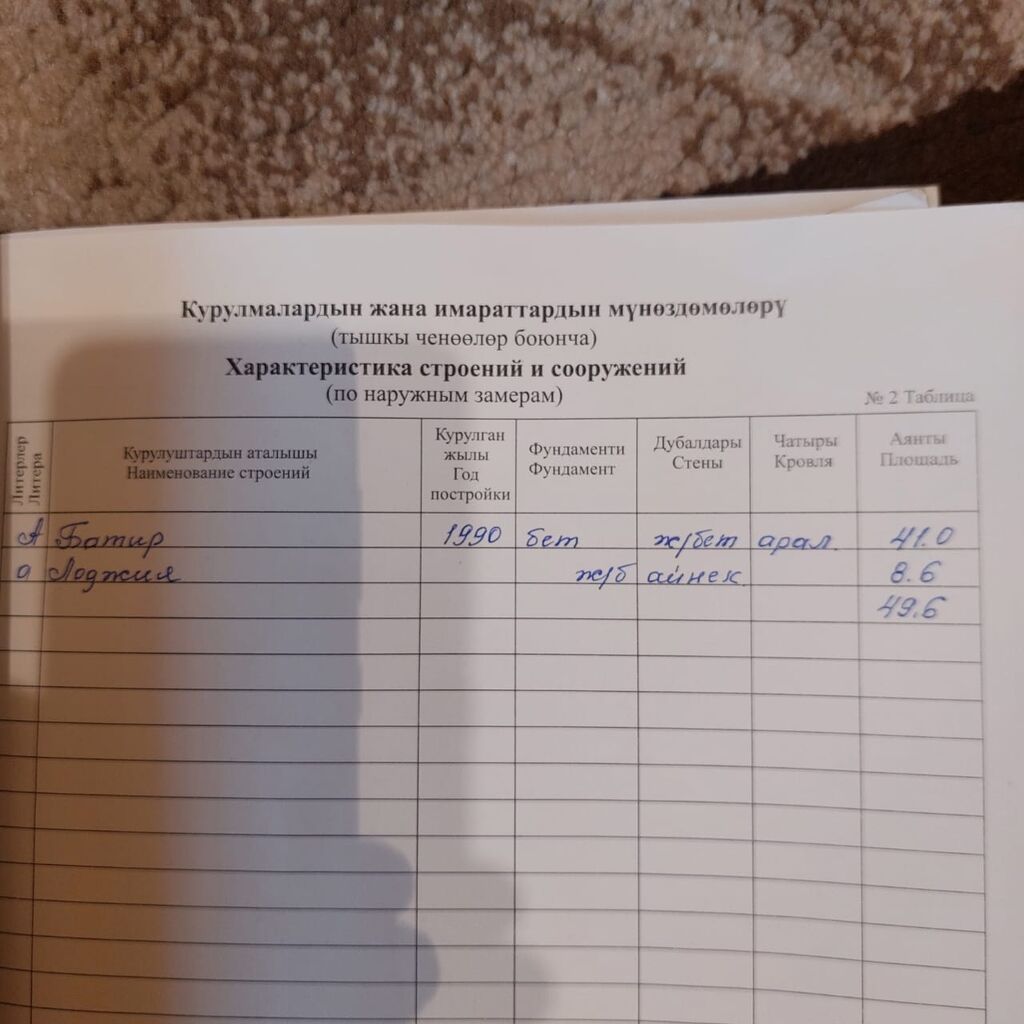 Курулмалардын жана имараттардын мүнөздөмөлөрү
(тышкы ченөөлөр боюнча)
Характеристика строений и сооружений
(по наружным замерам)
№ 2 Таблица
Литерлер
Литера
Курулуштардын аталышы
Наименование строений
Курулган
жылы
Год
постройки
Фундаменти
Фундамент
Дубалдары
Стены
Чатыры
Кровля
Аянты
Площадь
А Батир 1990 бет ж/бет арал. 41.0
а Лоджия ж/б айнек 8.6
49.6